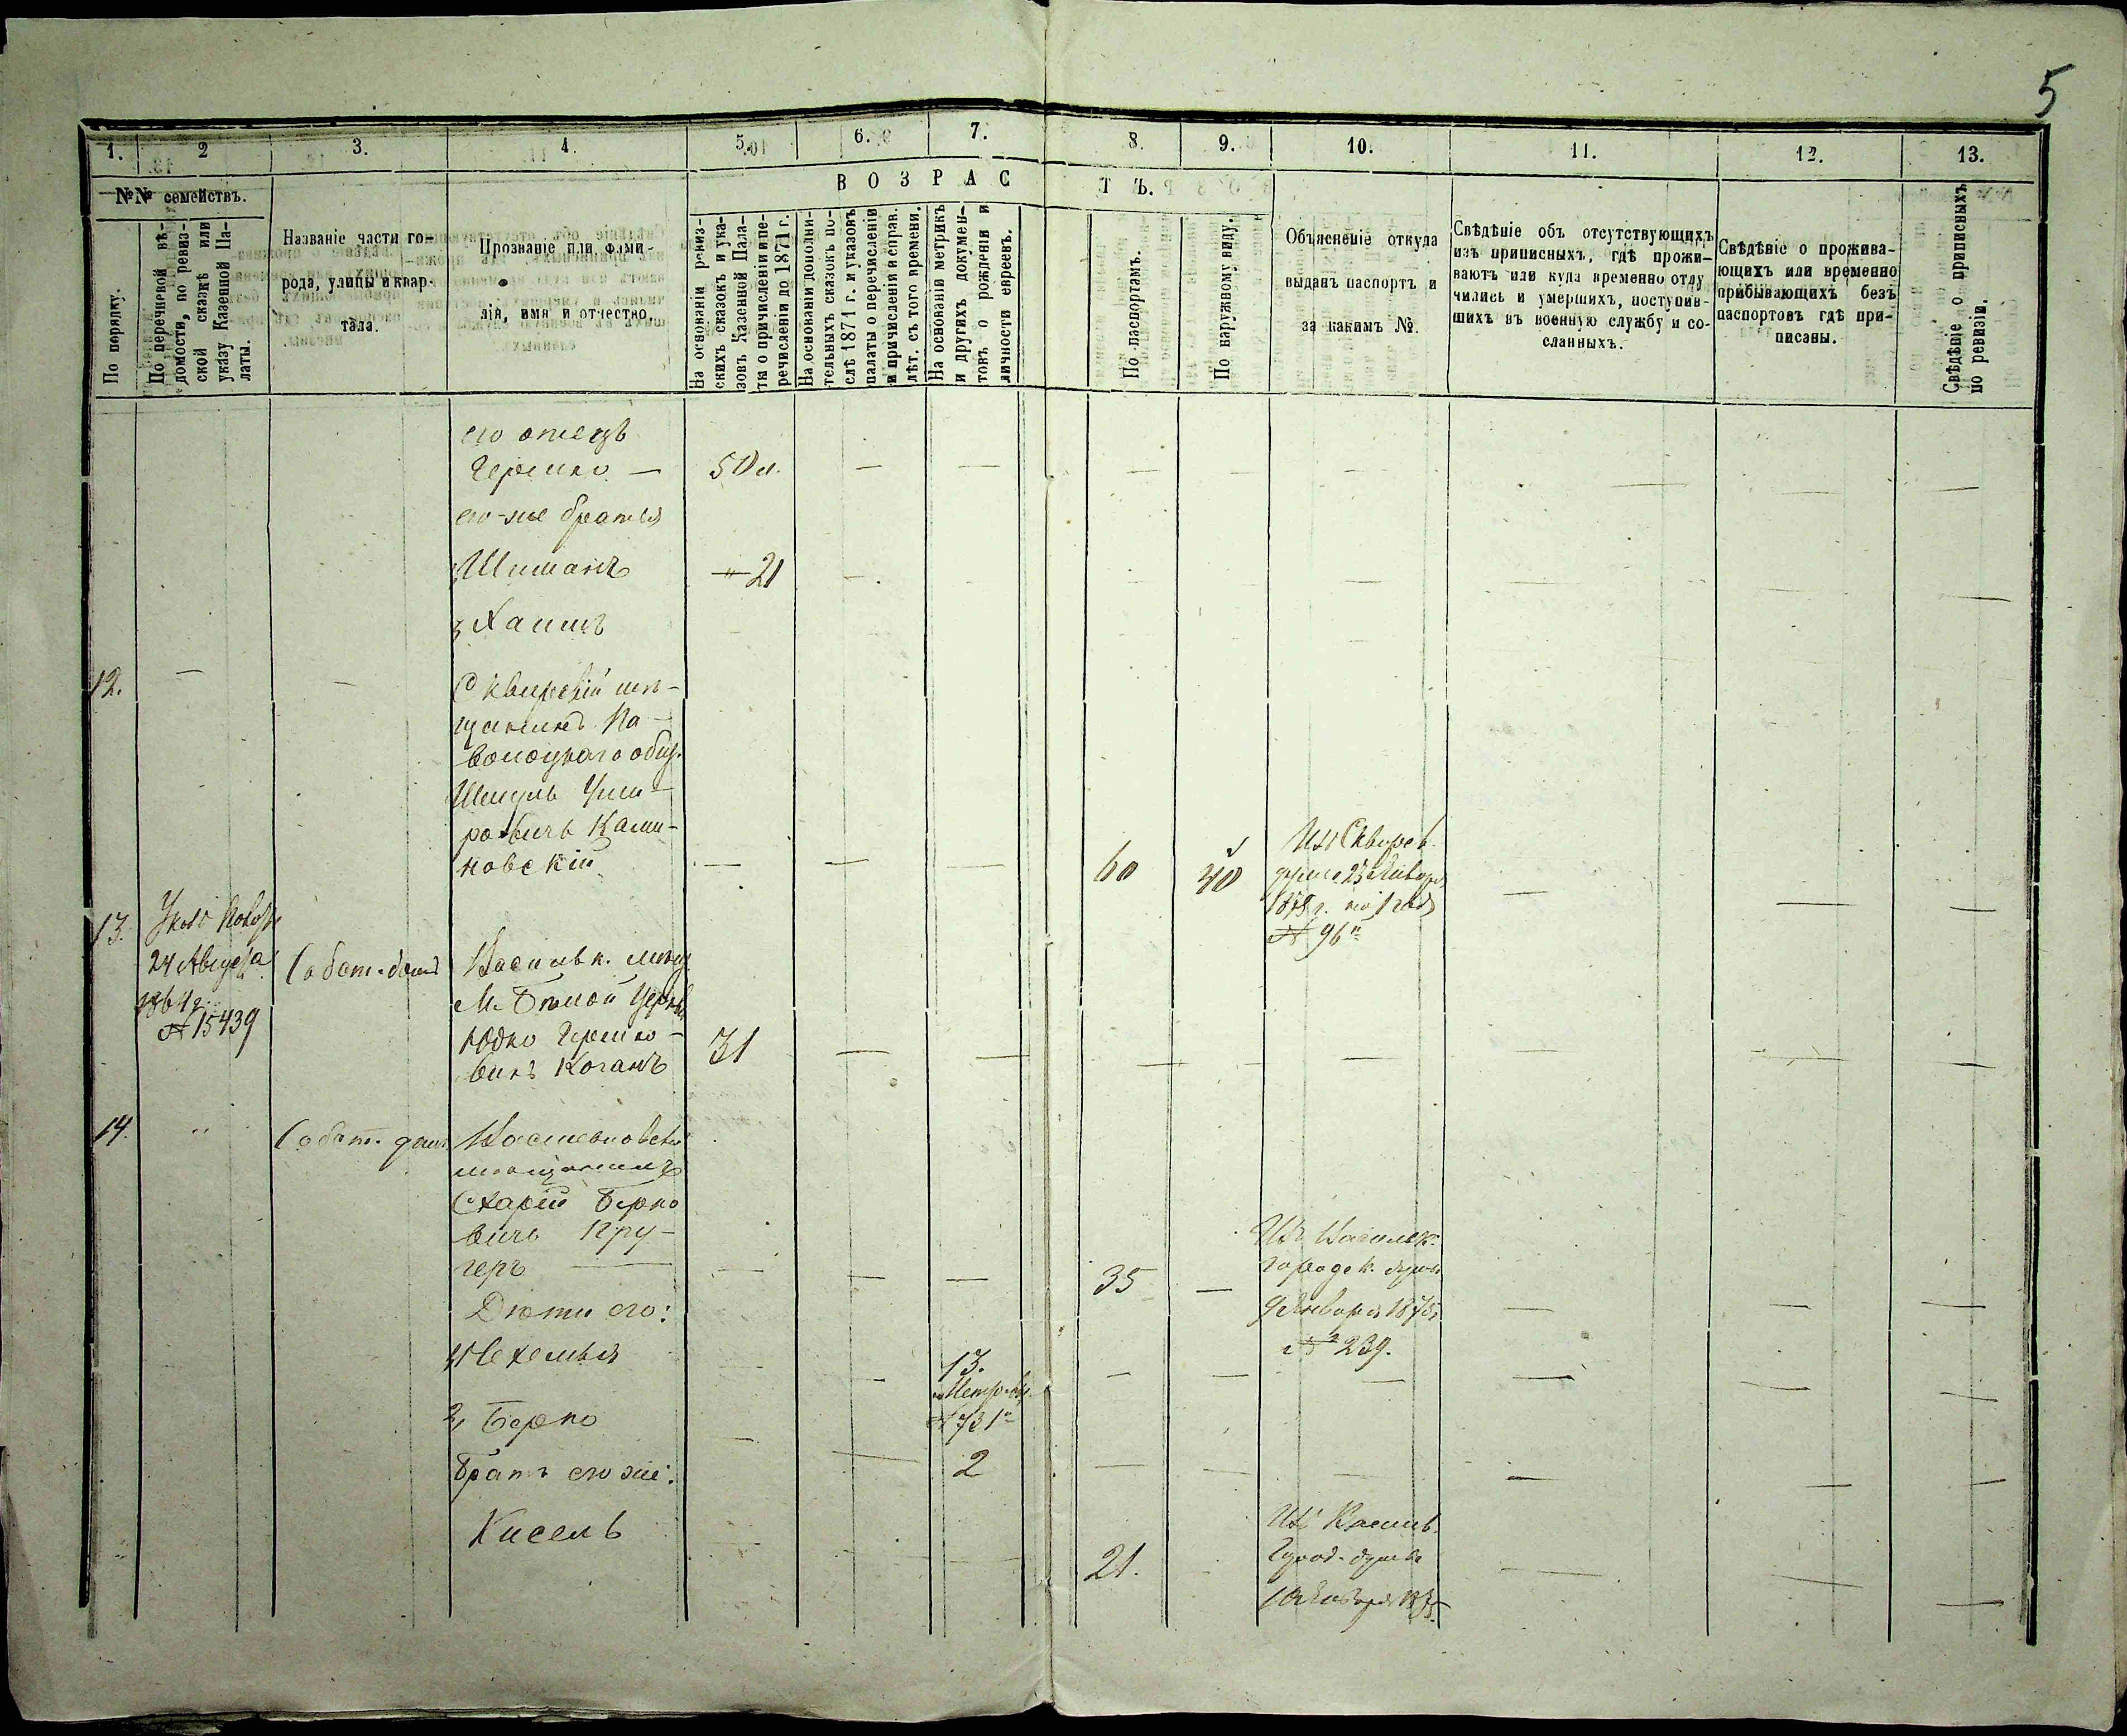 5
1.
2
3.
4.
5.
6.
7.
8.
9.
10.
11.
12.
13.
№№ семействъ.
По порядку.
По перечневой вѣ-
домости, по ревиз-
ской сказкѣ или
указу Казенной Па-
латы.
Названіе части го-
рода, улицы и квар-
тала.
Прозваніе или фами-
лія, имя и отчество.
ВОЗРАСТЪ.
На основаніи ревиз-
скихъ сказокъ и ука-
зовъ Казенной Пала-
ты о причисленіи и пе-
речисленіи до 1871 г.
На основаніи дополни-
тельныхъ сказокъ по-
слѣ 1871 г. и указовъ
палаты о перечисленіи
и причисленіи и справ.
лѣт. съ того времени.
На основаніи метрикъ
и другихъ докумен-
товъ о рожденіи и
личности евреевъ.
По паспортамъ.
По наружному виду.
Объясненіе откуда
выданъ паспортъ и
за какимъ №.
Свѣдѣніе объ отсутствующихъ
изъ приписныхъ, гдѣ прожи-
ваютъ или куда временно отлу
чились и умершихъ, поступив-
шихъ въ военную службу и со-
сланныхъ.
Свѣдѣніе о прожива-
ющихъ или временно
прибывающихъ безъ
паспортовъ гдѣ при-
писаны.
Свѣдѣніе о приписныхъ
по ревизіи.
его отецъ
Гершко — 50 л. — — — — — — — —
его-же братья
Шиманъ 21 — — — — — — —
Хаимъ
12. — — Сквирскій мѣ-
щанинъ Па-
волоцкаго общ.
Шмуль
ровичъ Ками-
новскій — — — 60 40
Изъ Сквирск.
думы 23 Января
1875 г. на 1 годъ
№ 96
13. Указъ
24 Августа
1864 г.
№ 15439
Собст. домъ
Васильк. мѣщ.
М. Бѣлой Церкви
Юдко Гершко-
вичъ Коганъ 31 — — — — — — —
14. " Собст. домъ
мѣщанинъ
Берко
вичъ Кру-
геръ — — — — 35 —
Изъ Васильк.
Городск. думы
9 Января 1875
№ 239.
Дѣти его:
13.
Метр. вы.
№ 731
2, Берко 2
Братъ его же:
Кисель 21.
Изъ Васильк.
Город. думы